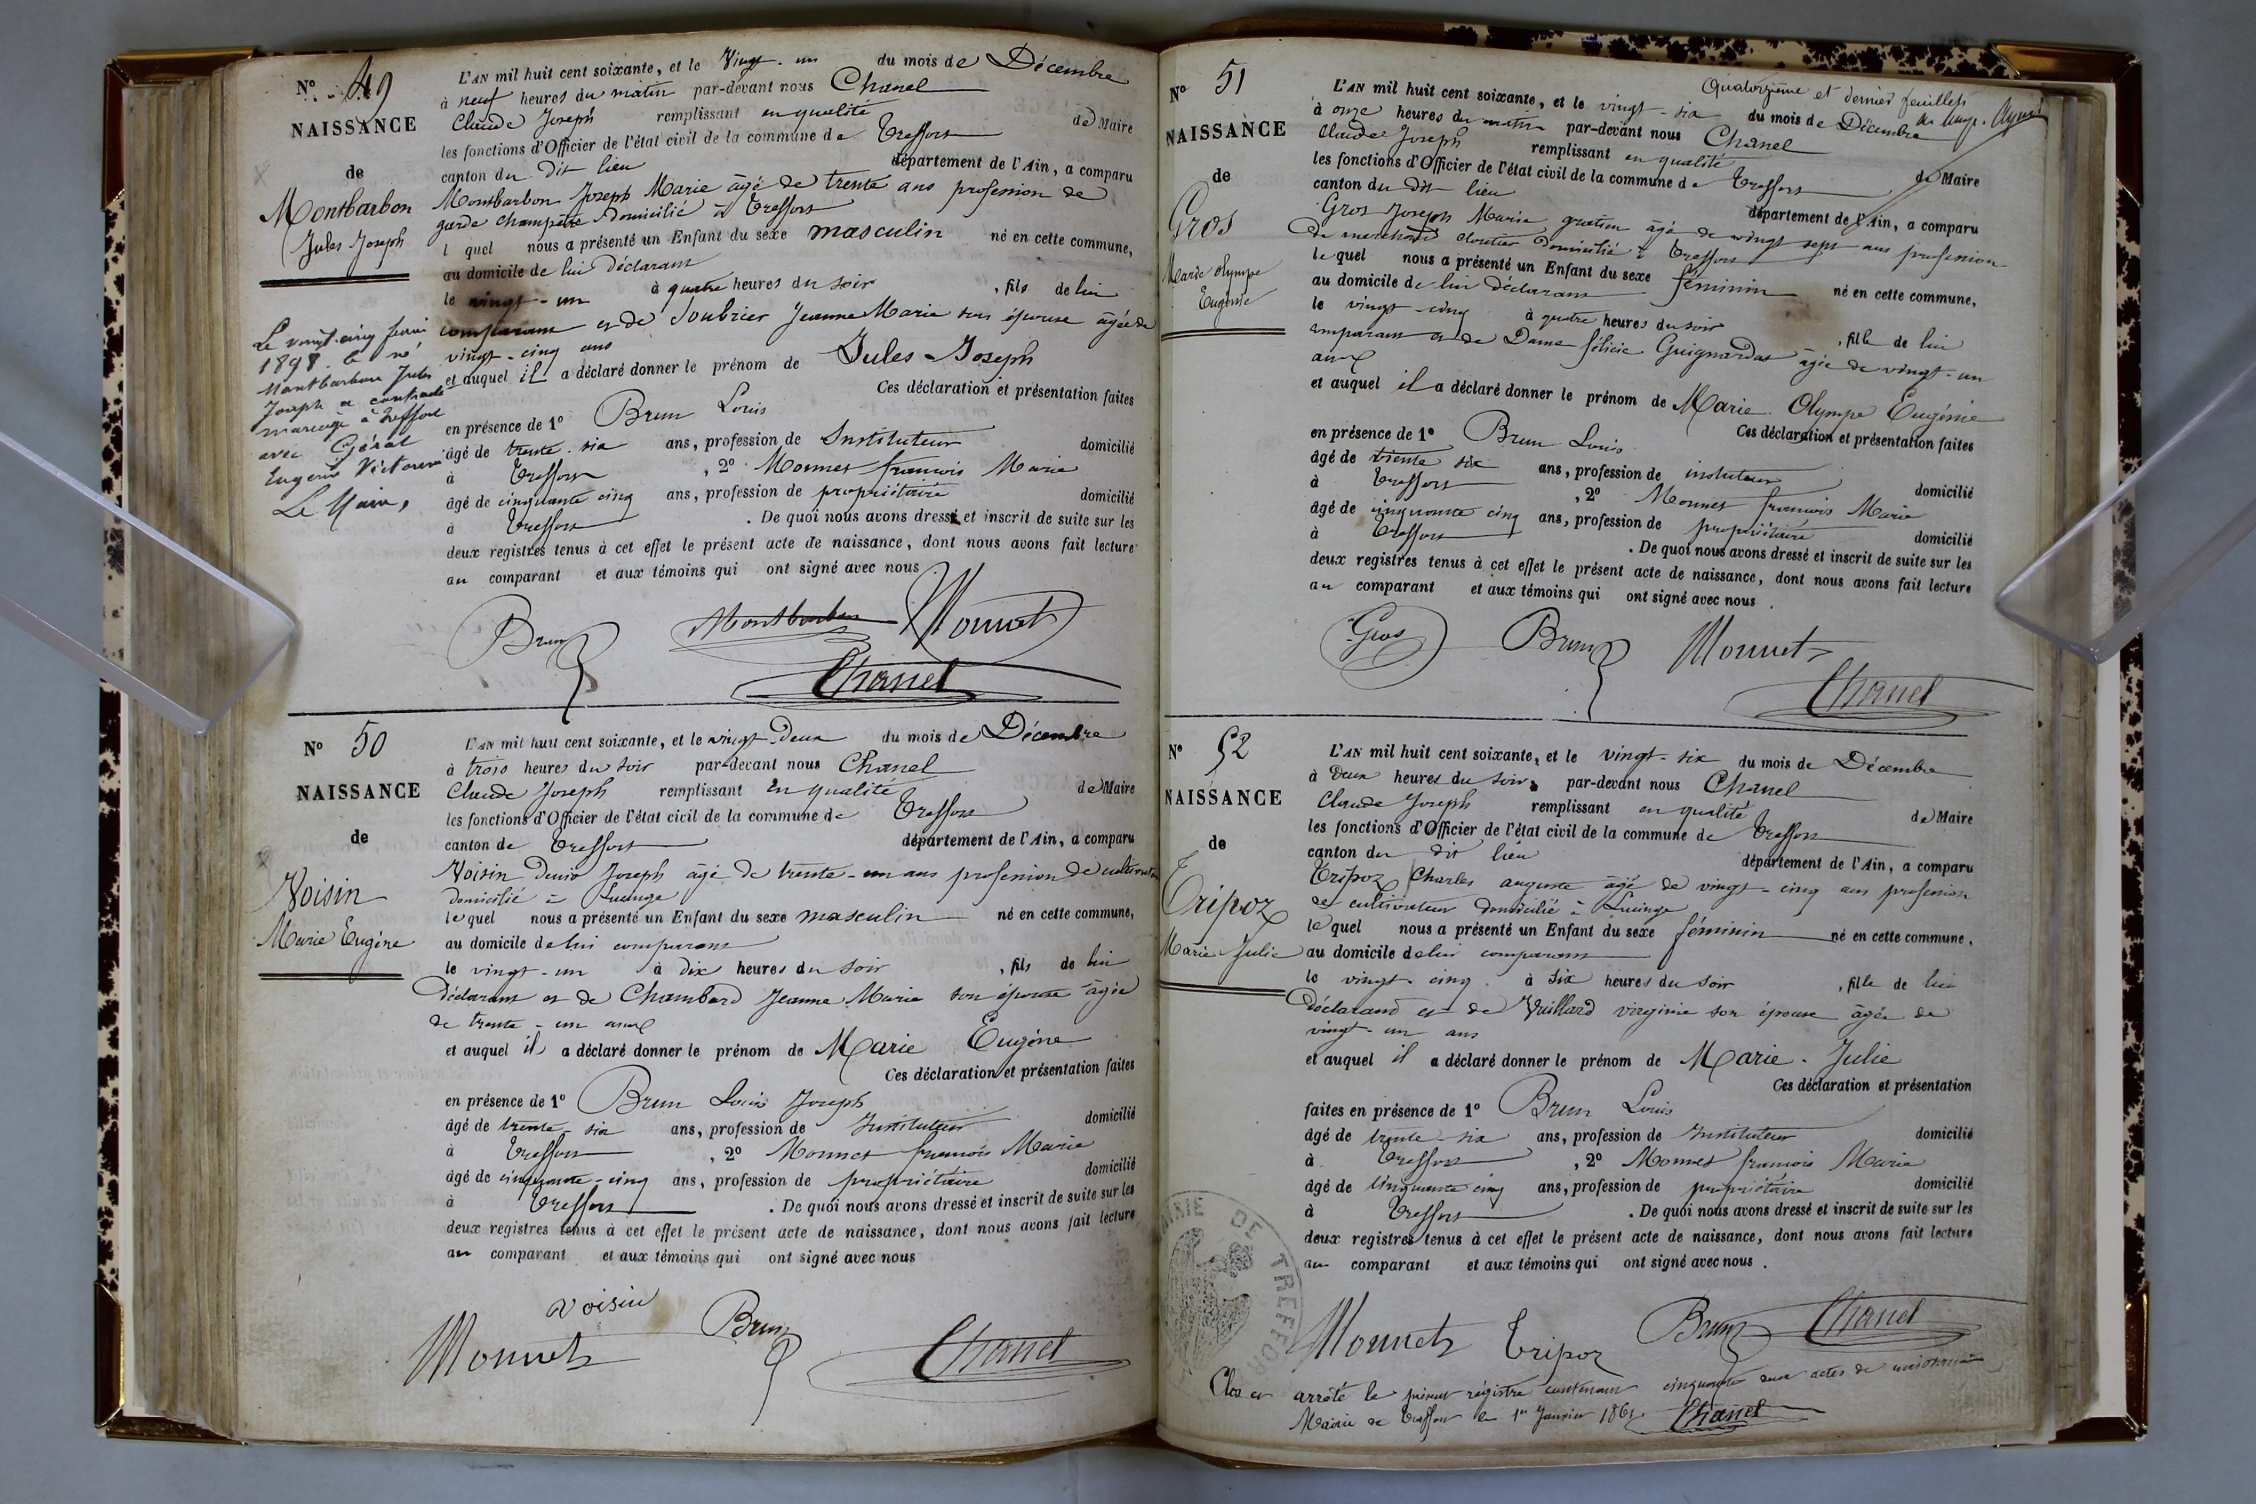 N° 49
NAISSANCE
de
Montbarbon
Jules Joseph
Le vingt-cinq
1898 le né
Montbarbon Jules
Joseph a contracté
mariage à Treffort
avec Gérat
Eugénie
Le Maire,
L'AN mil huit cent soixante, et le Vingt-un du mois de Décembre
à neuf heures du matin par-devant nous Chanel
Claude Joseph remplissant en qualité de Maire
les fonctions d'Officier de l'état civil de la commune de Treffort
canton du dit lieu département de l'Ain, a comparu
Montbarbon Joseph Marie âgé de trente ans profession de
garde champêtre domicilié à Treffort
l quel nous a présenté un Enfant du sexe masculin né en cette commune,
au domicile de lui déclarant
le vingt-un à quatre heures du soir, fils de lui
comparant et de Soubrier Jeanne Marie son épouse âgée de
vingt-cinq ans
et auquel il a déclaré donner le prénom de Jules-Joseph
Ces déclaration et présentation faites
en présence de 1° Brun Louis
âgé de trente-six ans, profession de Instituteur domicilié
à Treffort, 2° Monnet françois Marie
âgé de cinquante cinq ans, profession de propriétaire domicilié
à Treffort. De quoi nous avons dressé et inscrit de suite sur les
deux registres tenus à cet effet le présent acte de naissance, dont nous avons fait lecture
au comparant et aux témoins qui ont signé avec nous
Brun Montbarbon Monnet
Chanel
N° 50
NAISSANCE
de
Voisin
Marie Eugène
L'AN mil huit cent soixante, et le vingt-deux du mois de Décembre
à trois heures du soir par-devant nous Chanel
Claude Joseph remplissant en qualité de Maire
les fonctions d'Officier de l'état civil de la commune de Treffort
canton de Treffort département de l'Ain, a comparu
Voisin Denis Joseph âgé de trente-un ans profession de cultivateur
domicilié à Lucinge
le quel nous a présenté un Enfant du sexe masculin né en cette commune,
au domicile de lui comparant
le vingt-un à dix heures du soir, fils de lui
déclarant et de Chambard Jeanne Marie son épouse âgée
de trente-un ans
et auquel il a déclaré donner le prénom de Marie Eugène
Ces déclaration et présentation faites
en présence de 1° Brun Louis Joseph
âgé de trente-six ans, profession de Instituteur domicilié
à Treffort, 2° Monnet françois Marie
âgé de cinquante-cinq ans, profession de propriétaire domicilié
à Treffort. De quoi nous avons dressé et inscrit de suite sur les
deux registres tenus à cet effet le présent acte de naissance, dont nous avons fait lecture
au comparant et aux témoins qui ont signé avec nous
Voisin Brun
Monnet Chanel
Quatorzième et dernier feuillet
N° 51
NAISSANCE
de
Gros
Marie Olympe
Eugénie
L'AN mil huit cent soixante, et le vingt-six du mois de Décembre
à onze heures du matin par-devant nous Chanel
Claude Joseph remplissant en qualité de Maire
les fonctions d'Officier de l'état civil de la commune de Treffort
canton du dit lieu département de l'Ain, a comparu
Gros Joseph Marie gratien âgé de vingt sept ans profession
de marchand cloutier domicilié à Treffort
le quel nous a présenté un Enfant du sexe féminin né en cette commune,
au domicile de lui déclarant
le vingt-cinq à quatre heures du soir, fille de lui
comparant et de Dame félicie Guignardat âgée de vingt-un
ans
et auquel il a déclaré donner le prénom de Marie Olympe Eugénie
Ces déclaration et présentation faites
en présence de 1° Brun Louis
âgé de trente six ans, profession de instituteur domicilié
à Treffort, 2° Monnet françois Marie
âgé de cinquante cinq ans, profession de propriétaire domicilié
à Treffort. De quoi nous avons dressé et inscrit de suite sur les
deux registres tenus à cet effet le présent acte de naissance, dont nous avons fait lecture
au comparant et aux témoins qui ont signé avec nous.
Gros Brun Monnet
Chanel
N° 52
NAISSANCE
de
Tripoz
Marie Julie
L'AN mil huit cent soixante, et le vingt-six du mois de Décembre
à deux heures du soir, par-devant nous Chanel
Claude Joseph remplissant en qualité de Maire
les fonctions d'Officier de l'état civil de la commune de Treffort
canton du dit lieu département de l'Ain, a comparu
Tripoz Charles auguste âgé de vingt-cinq ans profession
de cultivateur domicilié à Lucinge
le quel nous a présenté un Enfant du sexe féminin né en cette commune,
au domicile de lui comparant
le vingt-cinq à six heures du soir, fille de lui
déclarant et de Vuillard virginie son épouse âgée de
vingt-un ans
et auquel il a déclaré donner le prénom de Marie-Julie
Ces déclaration et présentation
faites en présence de 1° Brun Louis
âgé de trente-six ans, profession de Instituteur domicilié
à Treffort, 2° Monnet françois Marie
âgé de cinquante cinq ans, profession de propriétaire domicilié
à Treffort. De quoi nous avons dressé et inscrit de suite sur les
deux registres tenus à cet effet le présent acte de naissance, dont nous avons fait lecture
au comparant et aux témoins qui ont signé avec nous.
MAIRIE DE TREFFORT
Monnet Tripoz Brun Chanel
Clos et arrêté le présent régistre contenant cinquante deux actes de naissance
Mairie de Treffort le 1er Janvier 1861 Chanel